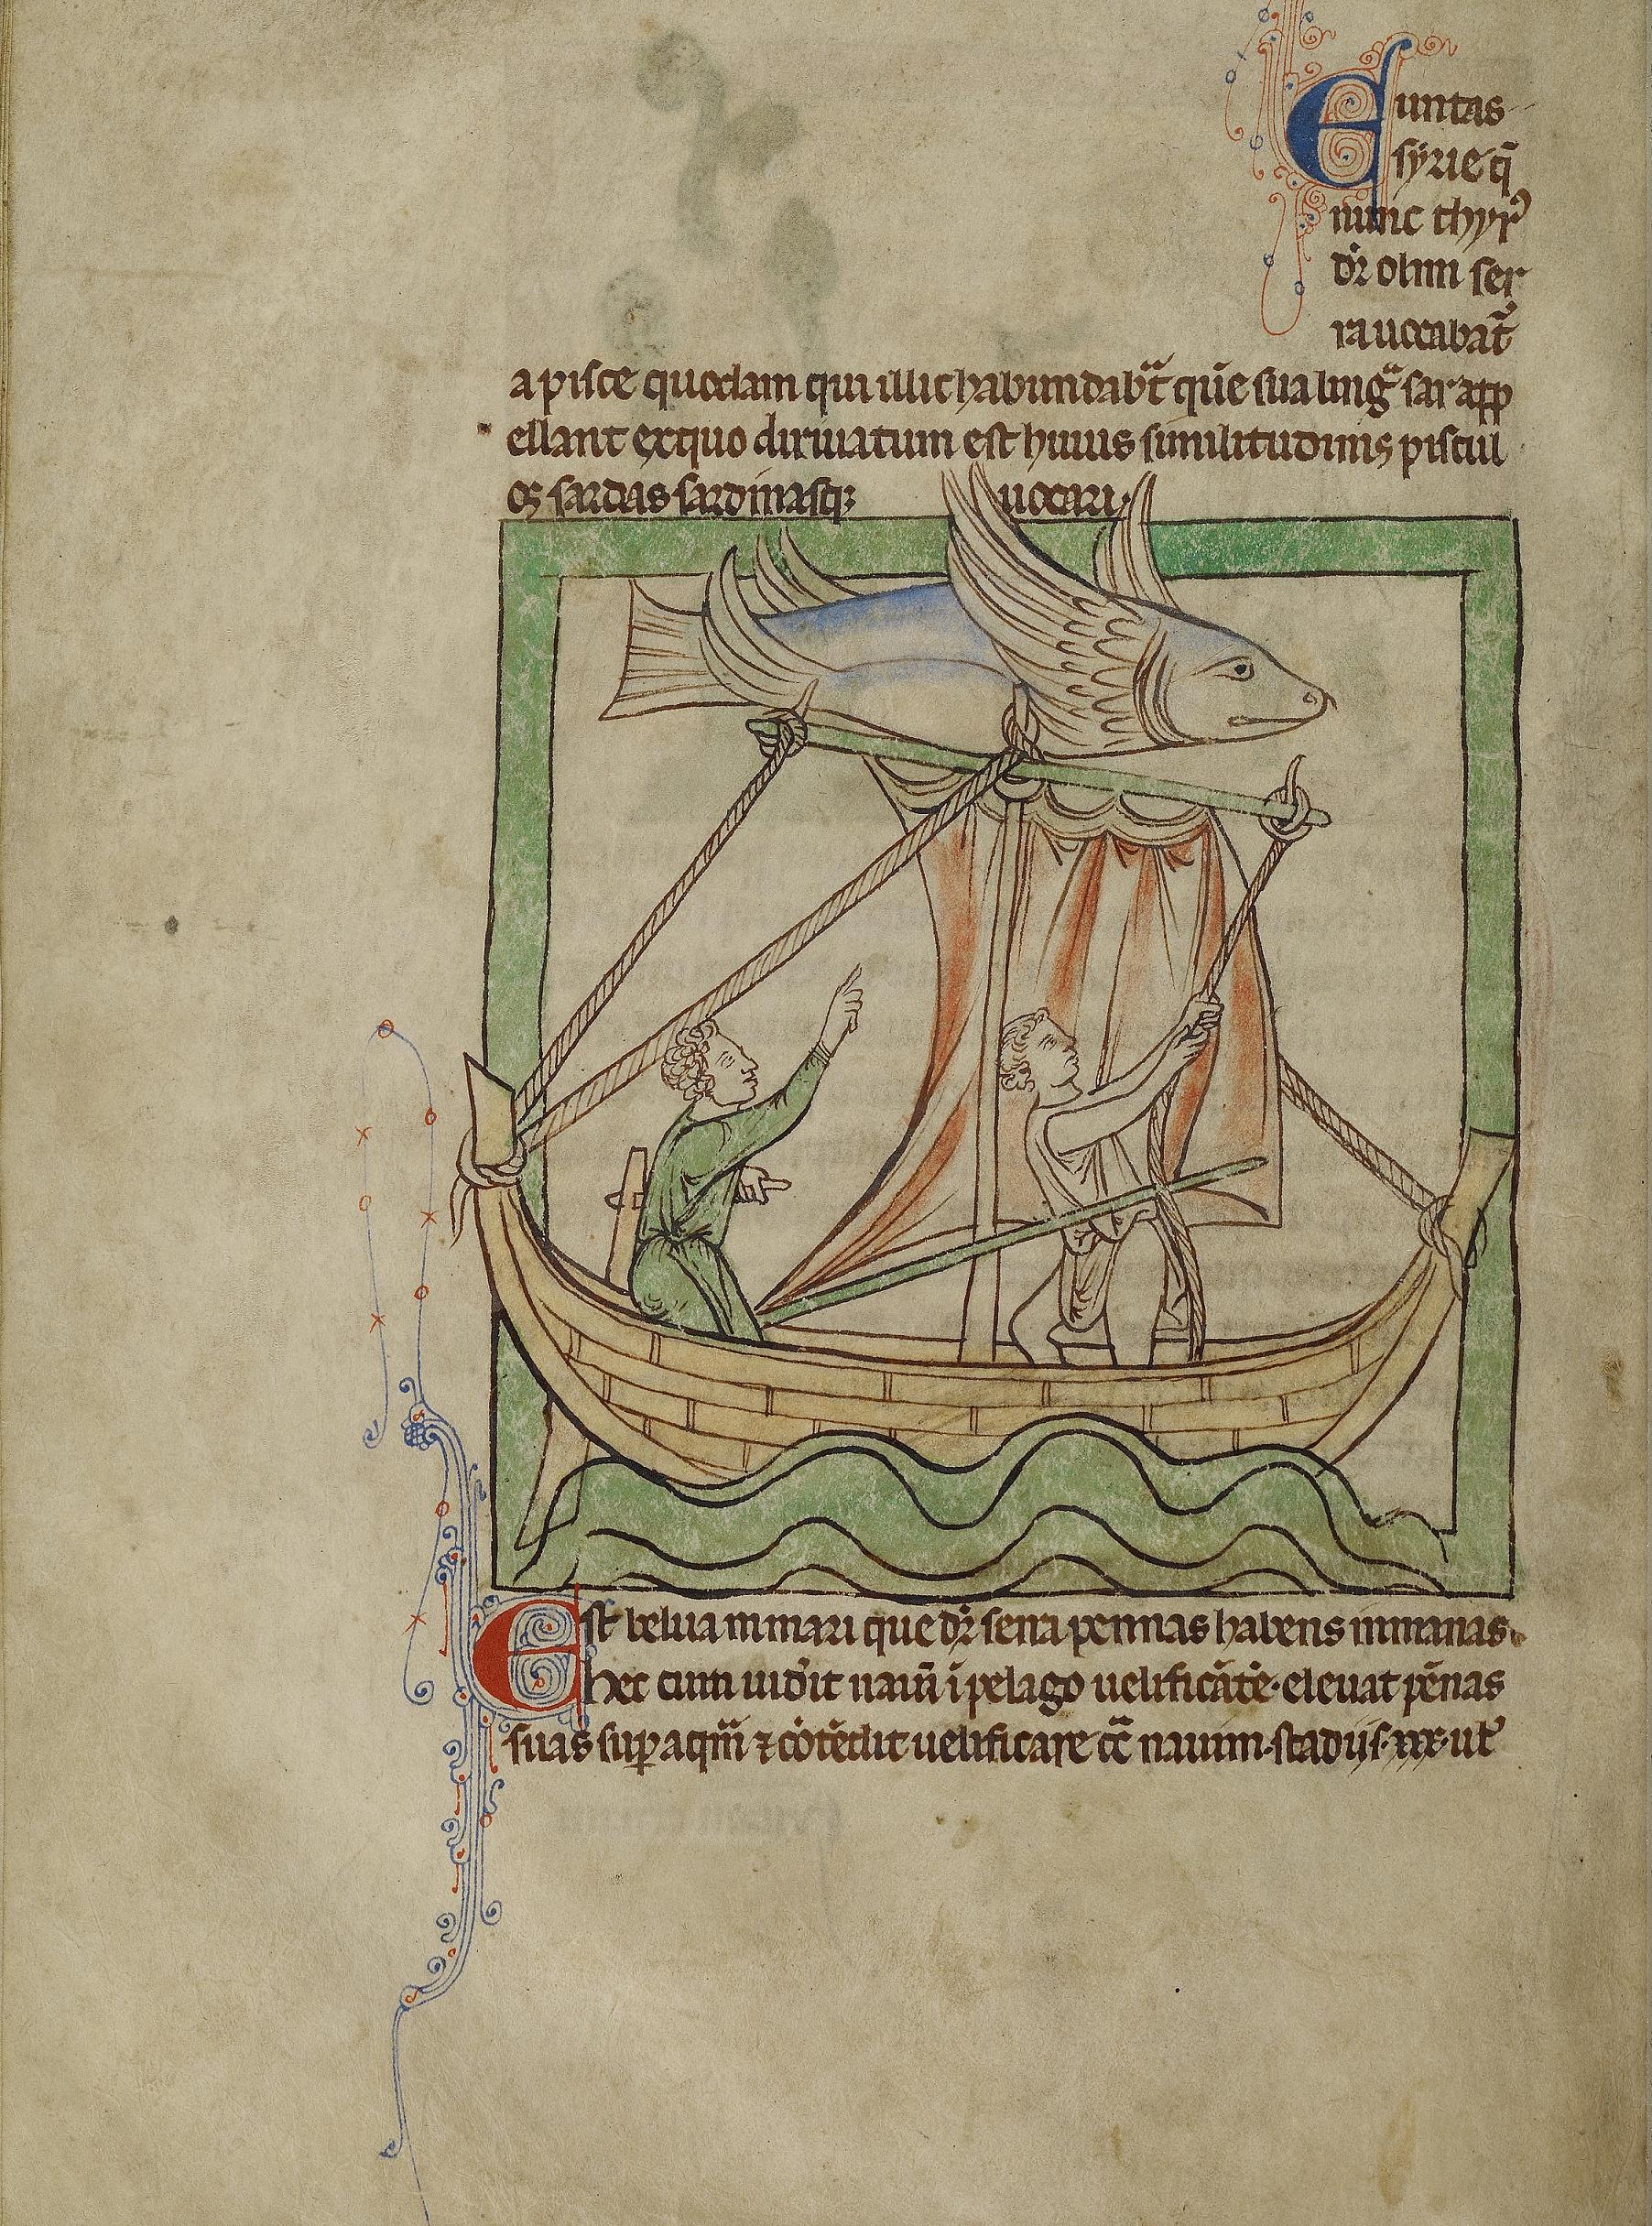 Ciuitas
syrie q̄
nunc thyrꝰ
dr̄ olim ser
ra uocabat᷑
a pisce quodam qui illic habundabat᷑ quē sua lingᷓ sar app
ellant ex quo diriuatum est huius similitudinis piscicul
oꝝ sardas sardinasqꝫ uocari.
Est belua in mari que dr̄ serra pennas habens inmanas.
hec cum uidɩ̄t nauī ī pelago uelificātē. eleuat pēnas
suas suꝑ aqm̄ ⁊ cōtēdit uelificare cō̄ nauim. stadijs. xxx. ul̓